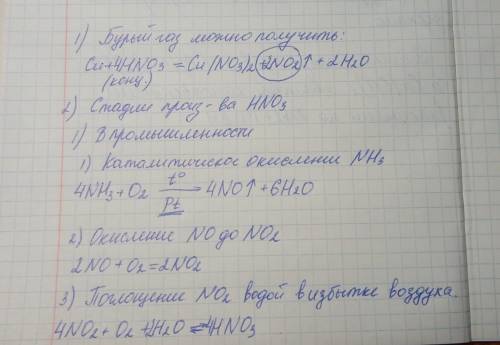 1) Бурый газ можно получить:
Cu+4HNO3 = Cu(NO3)2+2NO2↑ + 2H2O
(конц.)
2) Стадии произ-ва HNO3
1) В промышленности
1) Каталитическое окисление NH3
4NH3+O2 t° → 4NO↑+6H2O
Pt
2) Окисление NO до NO2
2NO+O2=2NO2
3) Поглощение NO2 водой в избытке воздуха.
4NO2+O2+2H2O ⇌ 4HNO3